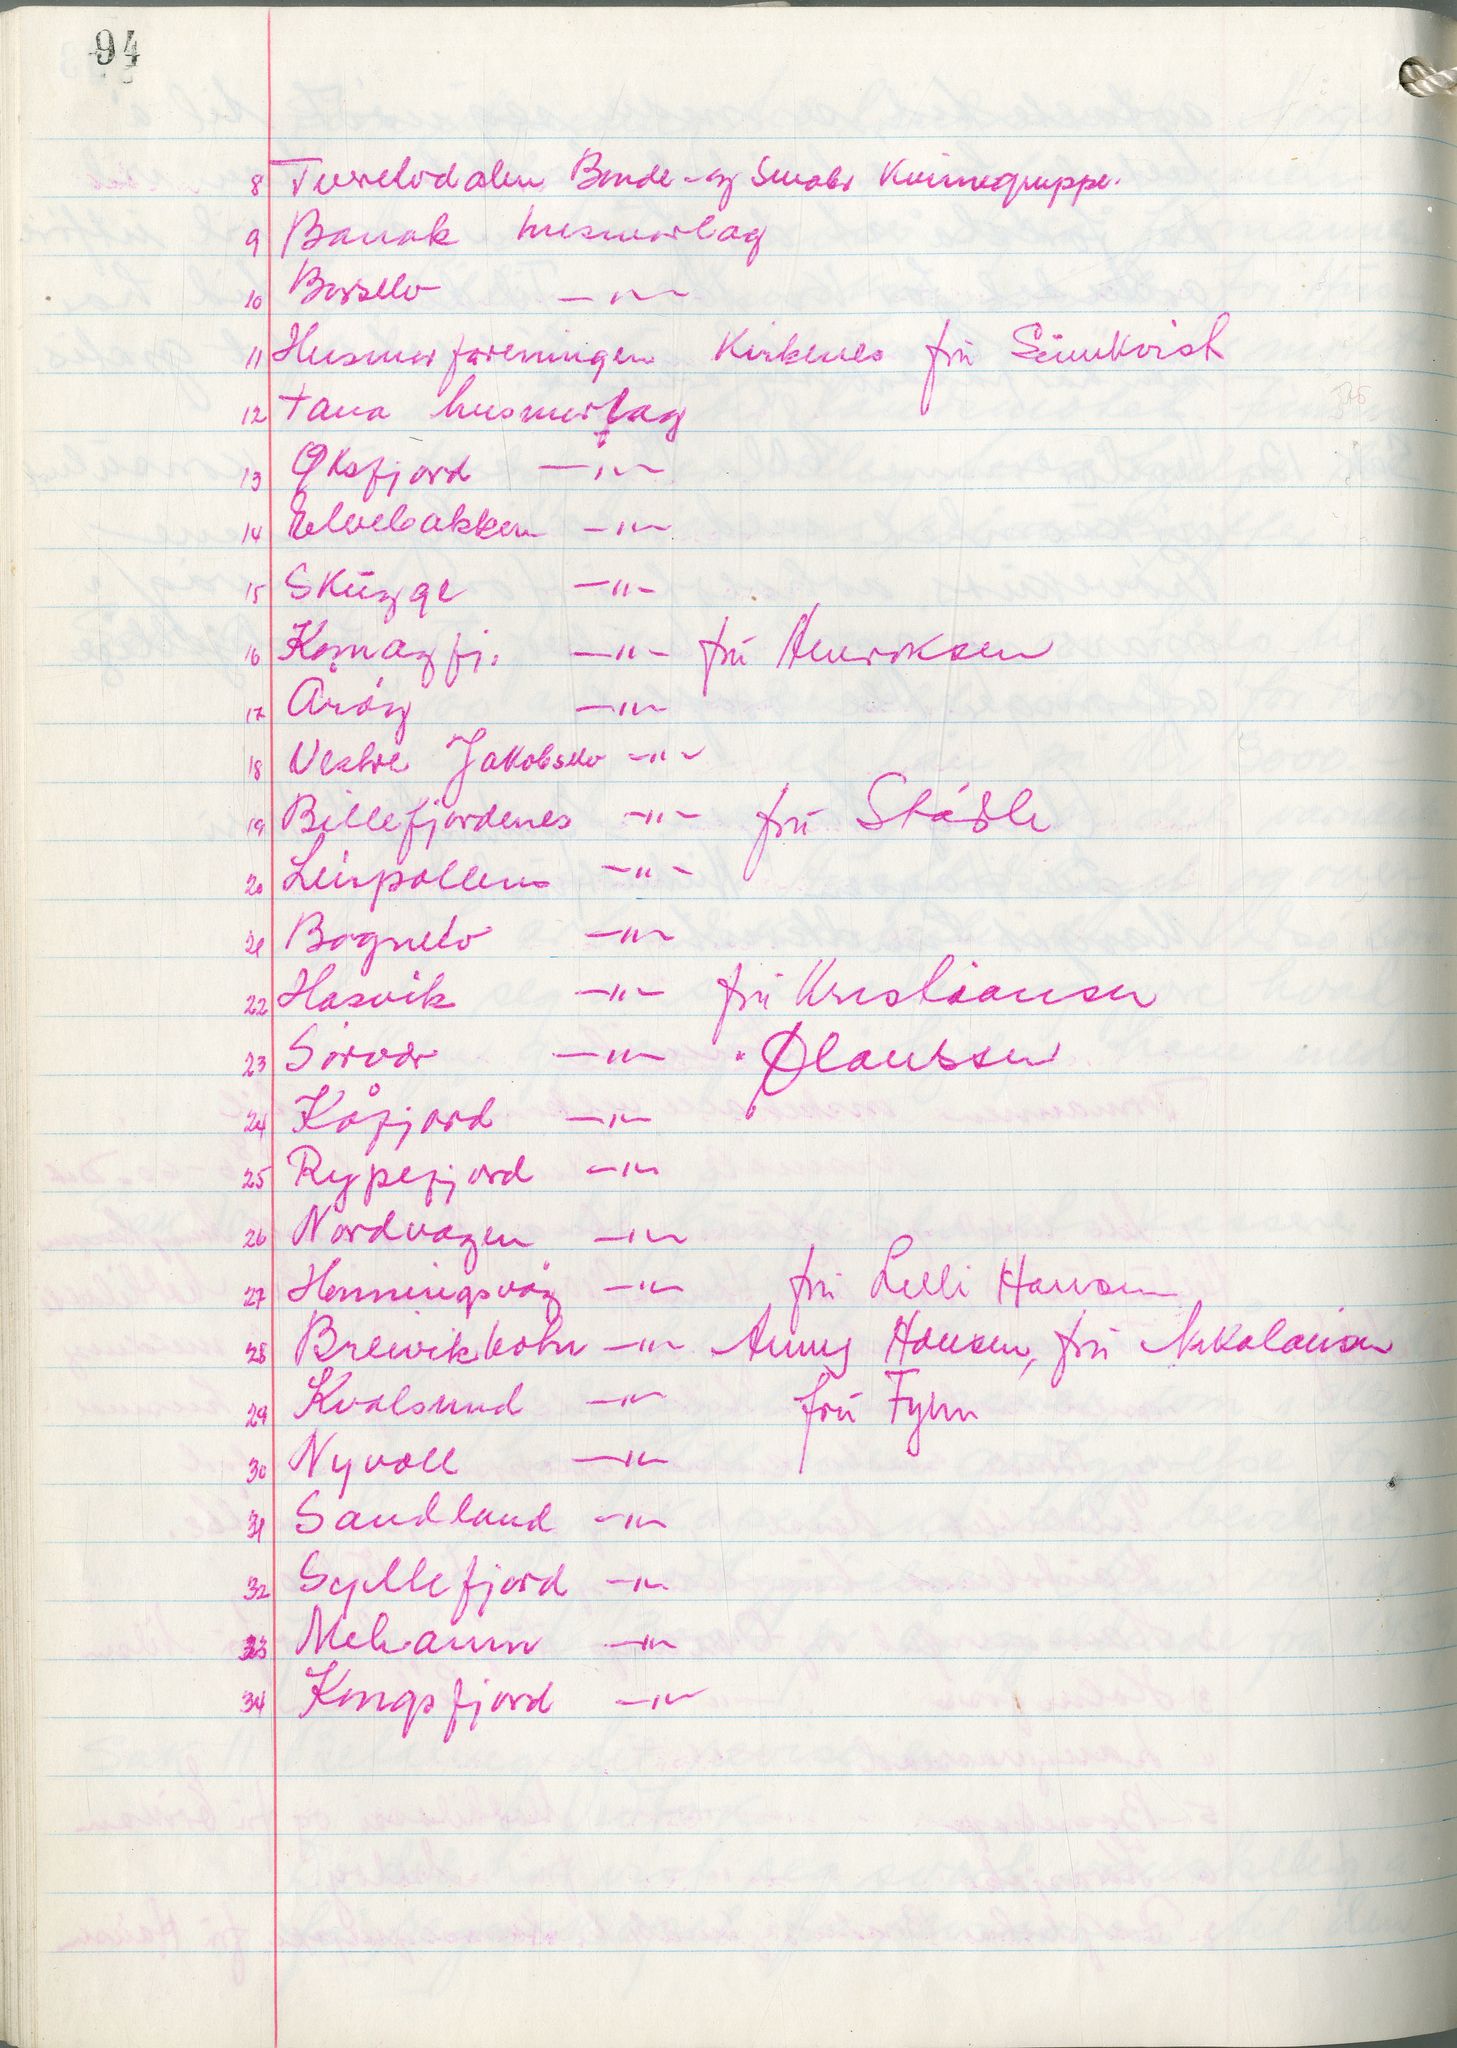 94
8 Tverelvdalen Bonde- og Småbr Kvinnegruppe.
9 Banak husmorlag
10 Børselv —"—
11 Husmorforeningen Kirkenes fru Sundkvist
12 Tana husmorlag
13 Øksfjord —"—
14 Elvebakken —"—
15 Skugge —"—
16 Komagfj. —"— fru Henriksen
17 Årøy —"—
18 Vestre Jakobselv —"—
19 Billefjordenes —"— fru Ståhle
20 Leirpollen —"—
21 Bognelv —"—
22 Hasvik —"— fru Kristiansen
23 Sørvær —"— " Olaussen
24 Kåfjord —"—
25 Rypefjord —"—
26 Nordvågen —"—
27 Honningsvåg —"— fru Lelli Hansen
28 Breivikbotn —"— Anny Hansen, fru Nikolaisen
29 Kvalsund —"— fru Fyhn
30 Nyvoll —"—
31 Sandland —"—
32 Syltefjord —"—
33 Mehamn —"—
34 Kongsfjord —"—